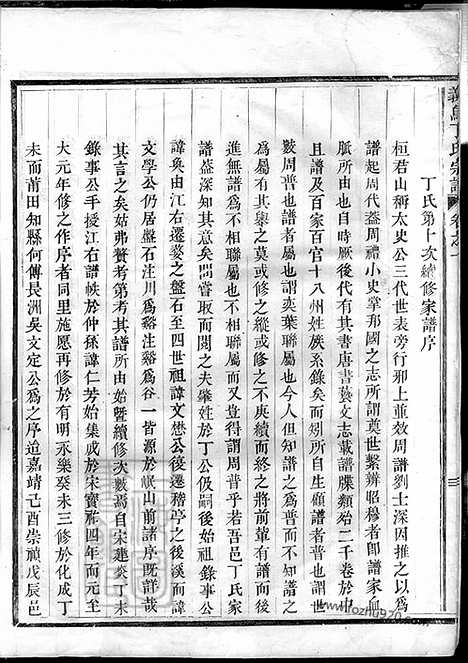 丁氏第十次續修家譜序
桓君山稱太史公三代世表旁行邪上並效周譜劉士深因推之以為
譜起周代葢周禮小史掌邦國之志所謂奠世繫辨昭穆者即譜家血
脈所由昉厥後代有其書唐書藝文志載譜牒類殆二千卷於中
且譜及百家百官十八州姓族系錄矣而矧所自生顧譜之為言普也譜世
數周普也謂奕葉聯屬也今人但知譜之為普而不
為屬有其舉之莫或修之縱或修之不庚續而終之將前有譜而後
進無譜猶之不相聯屬也不聯屬而又豈得謂周普乎若吾邑丁氏家
譜葢深知其意矣間嘗取而閱之夫肇姓於丁公伋嗣後始祖錄事公
諱奐由江右遷婺之盤石至四世祖諱文懋公後遷稽亭之後溪而諱
文學公仍居盤石注川為谿注谿為谷一皆源於岷山前諸序既詳哉
其言之矣姑弗贅考第考其譜所由始暨續修次數焉自宋建炎丁未
錄事公手授江右譜帙於仲孫諱仁芳始集成於宋寶祚四年而元至
大元年修之作序者同里施愿再修於永樂癸未三修於化成丁
未而莆田知縣何傅長洲吳文定公為之序迨嘉靖己酉崇禎戊辰邑
義烏丁氏宗譜
卷之一
www.tozhu920.net